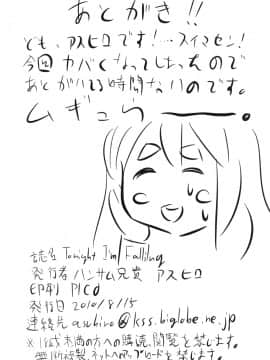 あとがき!!
ども、アスヒロです!…スイマセン!
今回カバくなってしまったので
あとがいてる時間ないのです。
ムギュウ――。
誌名 Tonight I'm Falling
発行者 ハンサム兄貴 アスヒロ
印刷 PICO
発行日 2010/8/15
連絡先 asuhiro@kss.biglobe.ne.jp
※18才未満の方への購読、閲覧を禁じます。
無断複製、ネットへのアップロードを禁じます。